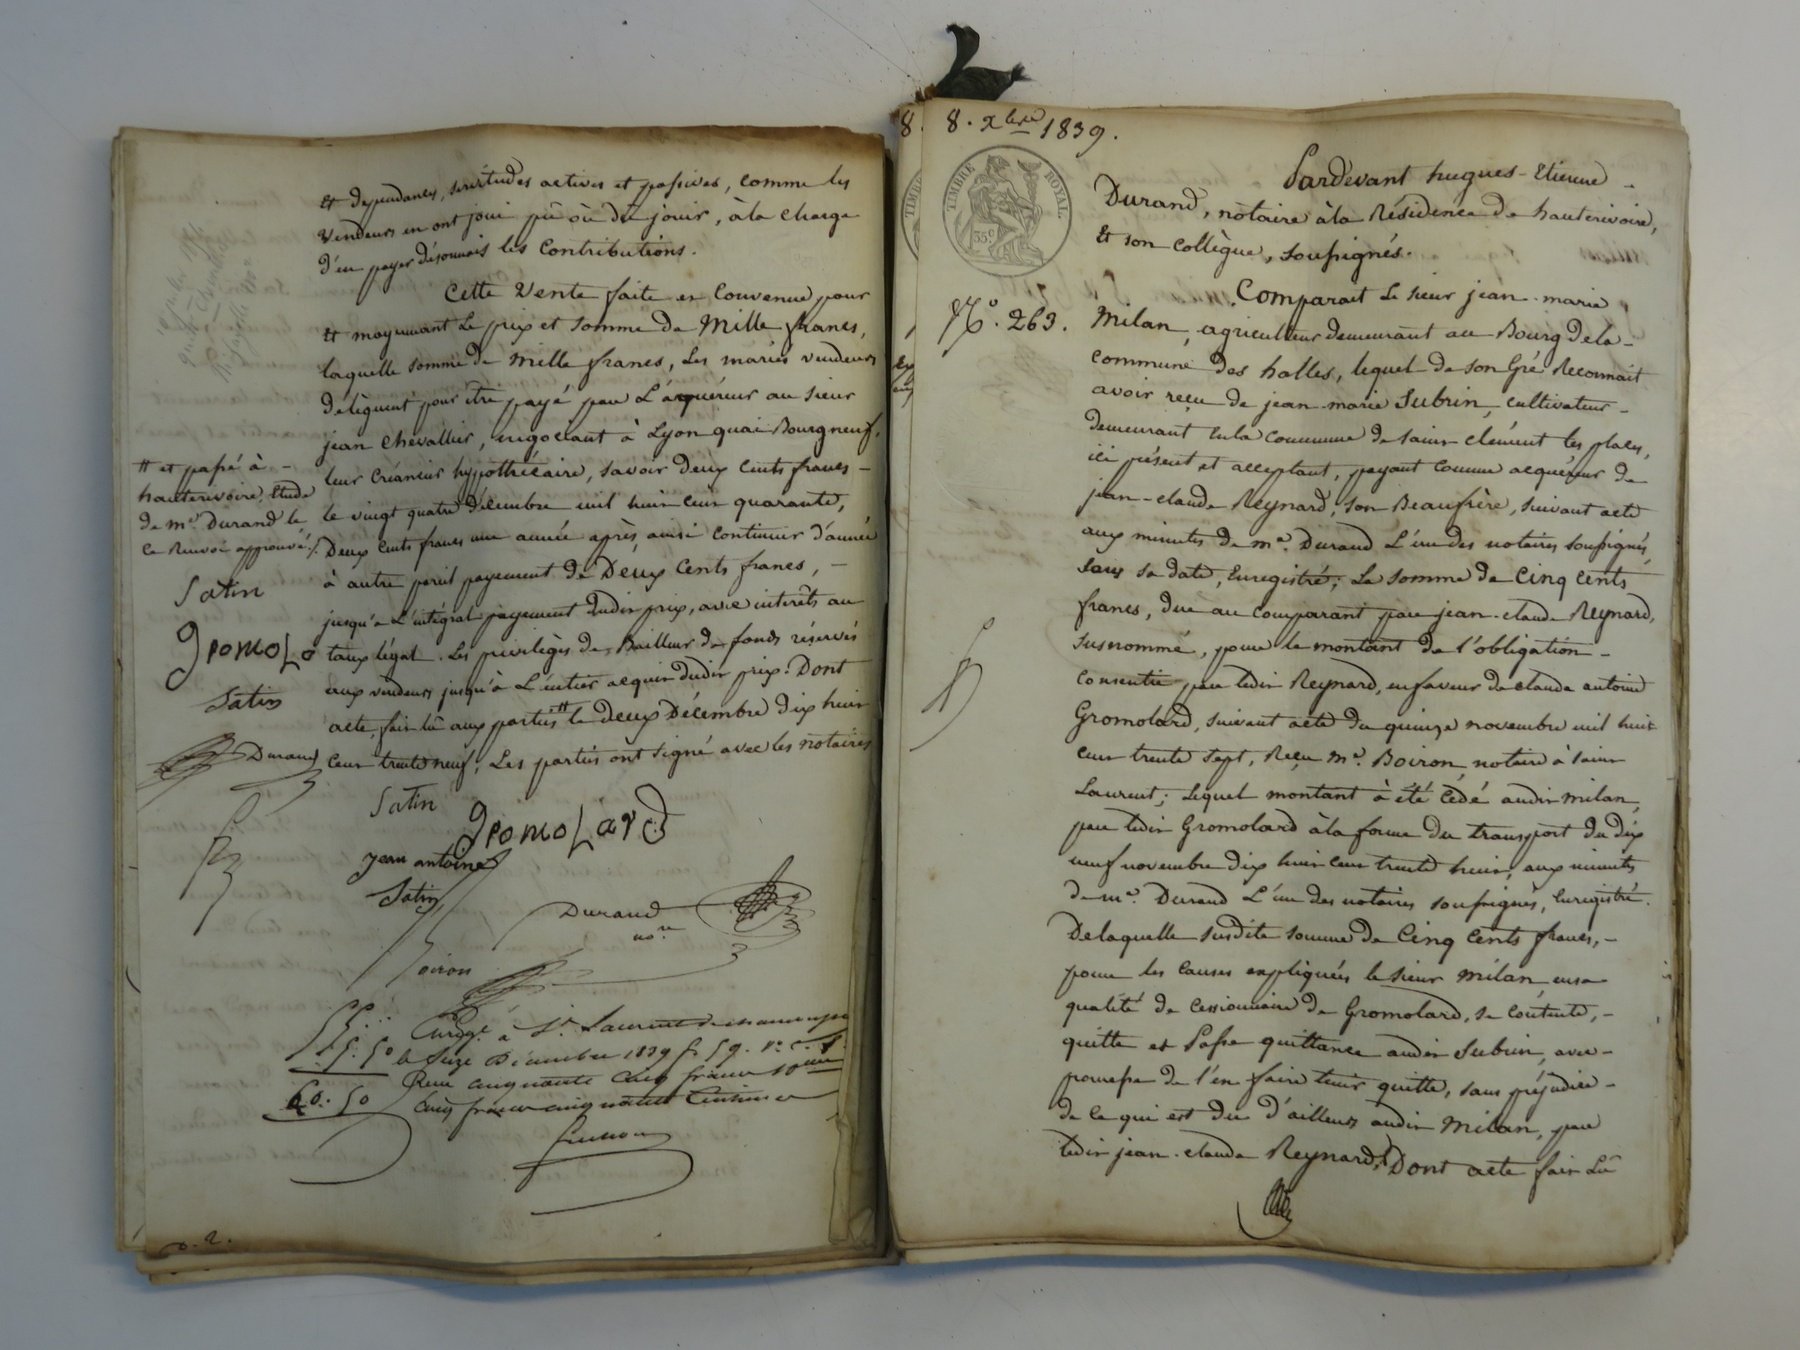 et dépendances, servitudes actives et passives, comme les
vendeurs en ont joui pû où dû jouir, à la charge
d'en payer désormais les contributions.
Cette vente faite et convenue pour
et moyennant le prix et somme de Mille francs,
laquelle somme de mille francs, les mariés vendeurs
délèguent pour être payé par L'acquéreur au sieur
jean chevallier, négociant à Lyon quai Bourgneuf,
leur créancier hypothécaire, savoir deux cents francs -
le vingt quatre décembre mil huit cent quarante,
Deux cents francs une année après, ainsi continuer d'année
à autre pareil payement de Deux Cents francs, -
jusqu'à L'intégral payement dudit prix, avec intérêts au
taux légal. Les privilèges de Bailleur de fonds réservés
aux vendeurs jusqu'à L'entier acquit dudit prix. Dont
acte, fait lû aux parties # le deux Décembre dix huit
cent trente neuf; Les parties ont signé avec les notaires
# et passé à -
hauterivoire, Etude
de me. Durand le
ce Renvoi approuvé /.
Satin
gromoLa
Satin
Durand
Satin
gromoLard
jean antoine
Satin
Durand
nore
Boiron
55. "
5. 50
60. 50
Enrgé. à St. Laurent de chamousset
le seize Décembre 1839 f. 59. Vo. c.
Reçu cinquante cinq francs 10me
cinq francs cinquante centimes
D. 2.
8.
8. Xbre 1839.
TIMBRE ROYAL
35c
No. 263.
Pardevant hugues-Etienne -
Durand, notaire à la Résidence de hauterivoire,
et son collègue, soussignés.
Comparait le sieur jean-marie
Milan, agriculteur demeurant au Bourg de la -
commune des halles, lequel de son Gré Reconnait
avoir reçu de jean-marie Subrin, cultivateur -
demeurant en la commune de saint clément les places,
ici présent et acceptant, payant comme acquéreur de
jean-claude Reynard, son Beaufrère, suivant acte
aux minutes de me. Durand L'un des notaires soussignés
sous sa date, Enregistré; La somme de cinq cents
francs, due au comparant par jean-claude Reynard,
susnommé, pour le montant de l'obligation -
consentie par ledit Reynard, en faveur de claude antoine
Gromolard, suivant acte du quinze novembre mil huit
cent trente sept, Reçu me. Boiron, notaire à saint
Laurent; lequel montant à été cédé audit milan,
par ledit Gromolard à la forme du transport du dix
neuf novembre dix huit cent trente huit, aux minutes
de me. Durand L'un des notaires soussignés, Enregistré.
De laquelle susdite somme de Cinq Cents francs, -
pour les causes expliquées le sieur milan, en sa
qualité de cessionnaire de Gromolard, se contente, -
quitte et Passe quittance audit Subrin, avec -
promesse de l'en faire tenir quitte, sans préjudice -
de ce qui est du d'ailleurs audit Milan, par
ledit jean-claude Reynard. Dont acte fait Lû